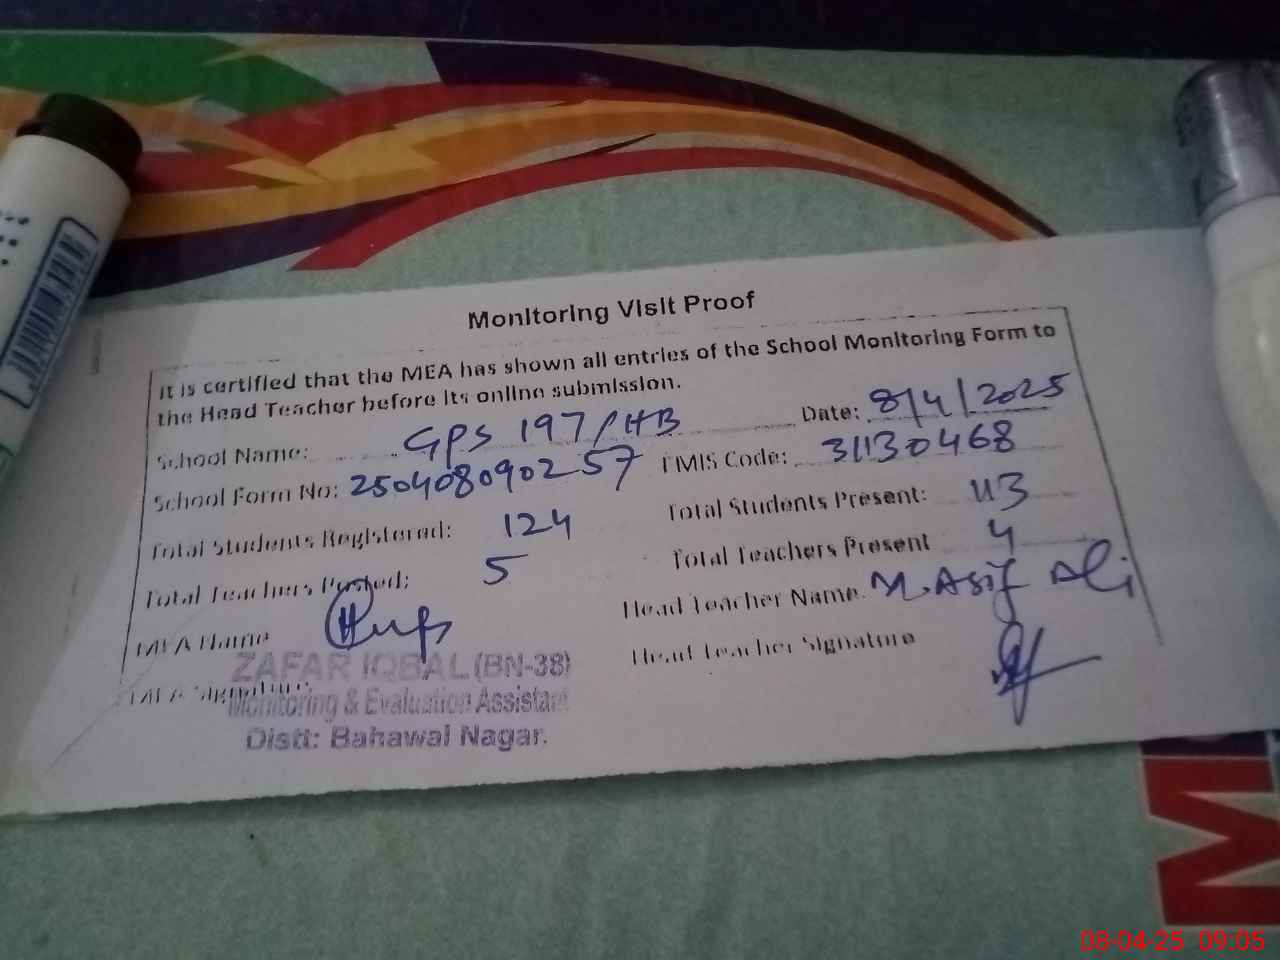 Monitoring Visit Proof
It is certified that the MEA has shown all entries of the School Monitoring Form to
the Head Teacher before its online submission.
School Name: GPS 197/HB Date: 8/4/2025
School Form No: 250408090257 EMIS Code: 31130468
Total Students Registered: 124 Total Students Present: 113
Total Teachers Posted: 5 Total Teachers Present 4
MEA Name Head Teacher Name. M. Asif Ali
MEA Signature Head Teacher Signature
ZAFAR IQBAL (BN-38)
Monitoring & Evaluation Assistant
Distt: Bahawal Nagar.
08-04-25 09:05